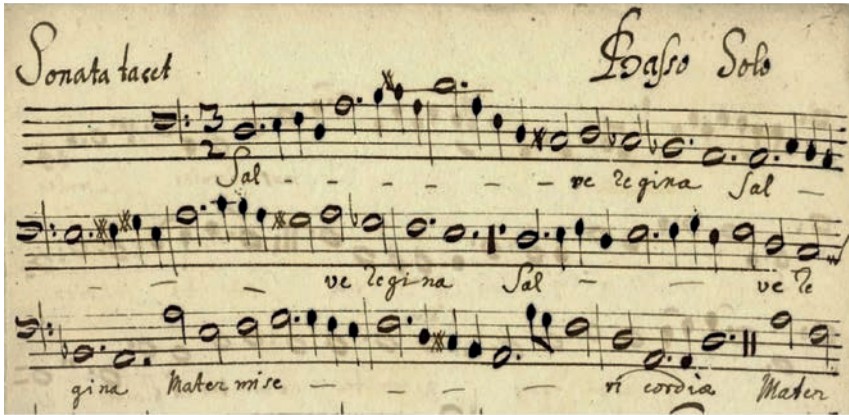 Sonata tacet Basso Solo
3
2
Sal - - - - - - ve Regina Sal -
- - - - ve Regina Sal - - - ve Re
gina Mater mise - - - - - ri cordiæ Mater